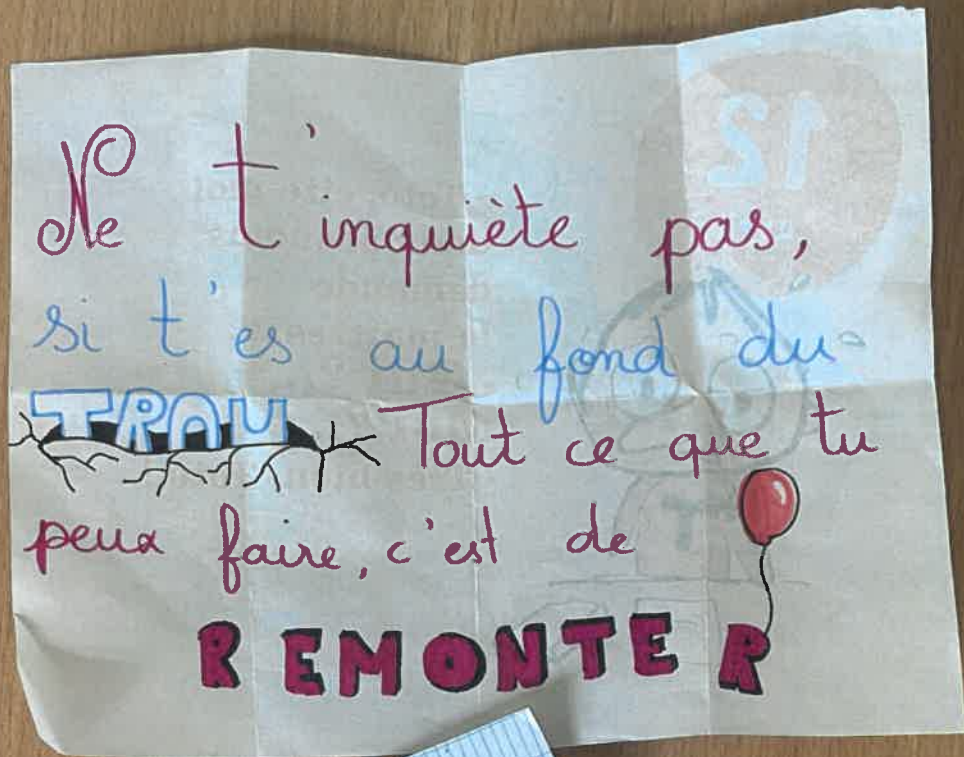 Ne t'inquiète pas,
si t'es au fond du
TROU Tout ce que tu
peux faire, c'est de
REMONTER
12